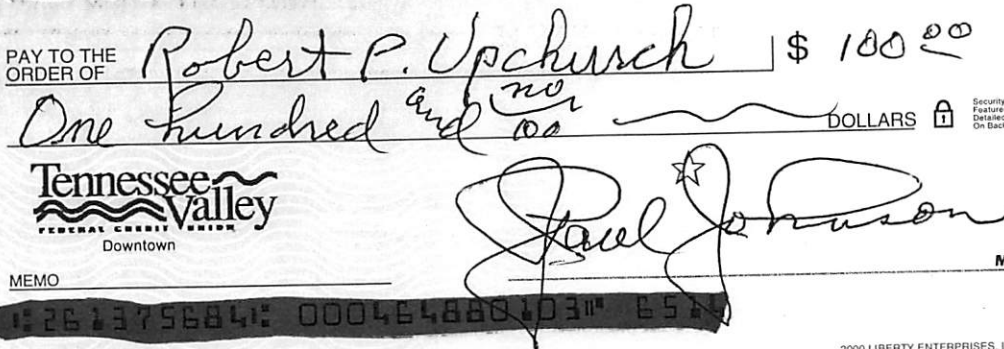 PAY TO THE ORDER OF Robert P. Upchurch $ 100 00
One hundred and no/00 DOLLARS
Security Features Detailed On Back
Tennessee Valley
FEDERAL CREDIT UNION
Downtown
Paul Johnson
MEMO
2000 LIBERTY ENTERPRISES, I